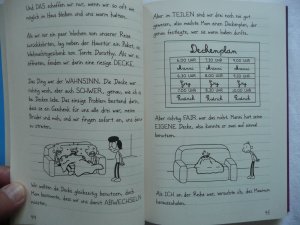 Und DAS schaffen wir nur, wenn wir so oft wie
möglich zu Haus bleiben und uns warm halten.
Als wir vor ein paar Wochen von unserer Reise
zurückkehrten, lag neben der Haustür ein Paket: ein
Weihnachtsgeschenk von Tante Dorothy. Als wir es
öffneten, fanden wir darin eine riesige DECKE.
Das Ding war der WAHNSINN. Die Decke war
richtig weich, aber auch SCHWER, genau, wie ich
Decken liebe. Das einzige Problem bestand darin,
dass es ein Geschenk für uns alle drei war, meine
Brüder und mich, und wir fingen sofort an, uns darum
zu streiten.
Wir wollten die Decke gleichzeitig benutzen, doch
Mom bestimmte, dass wir uns damit ABWECHSELN
müssten.
44
Aber in TEILEN sind wir drei noch nie gut
gewesen, also machte Mom einen Deckenplan, der
genau festlegte, wer sie wann haben durfte.
Deckenplan
6:00 UHR 7:30 UHR 9:00 UHR
Manni Manni Manni
6:30 UHR 8:00 UHR 9:30 UHR
Greg Greg Greg
7:00 UHR 8:30 UHR 10:00 UHR
Rodrick Rodrick Rodrick
Aber richtig FAIR war das nicht. Manni hat seine
EIGENE Decke, also konnte er zwei auf einmal
benutzen.
Als ICH an der Reihe war, versuchte ich, das Maximum
herauszuholen.
45